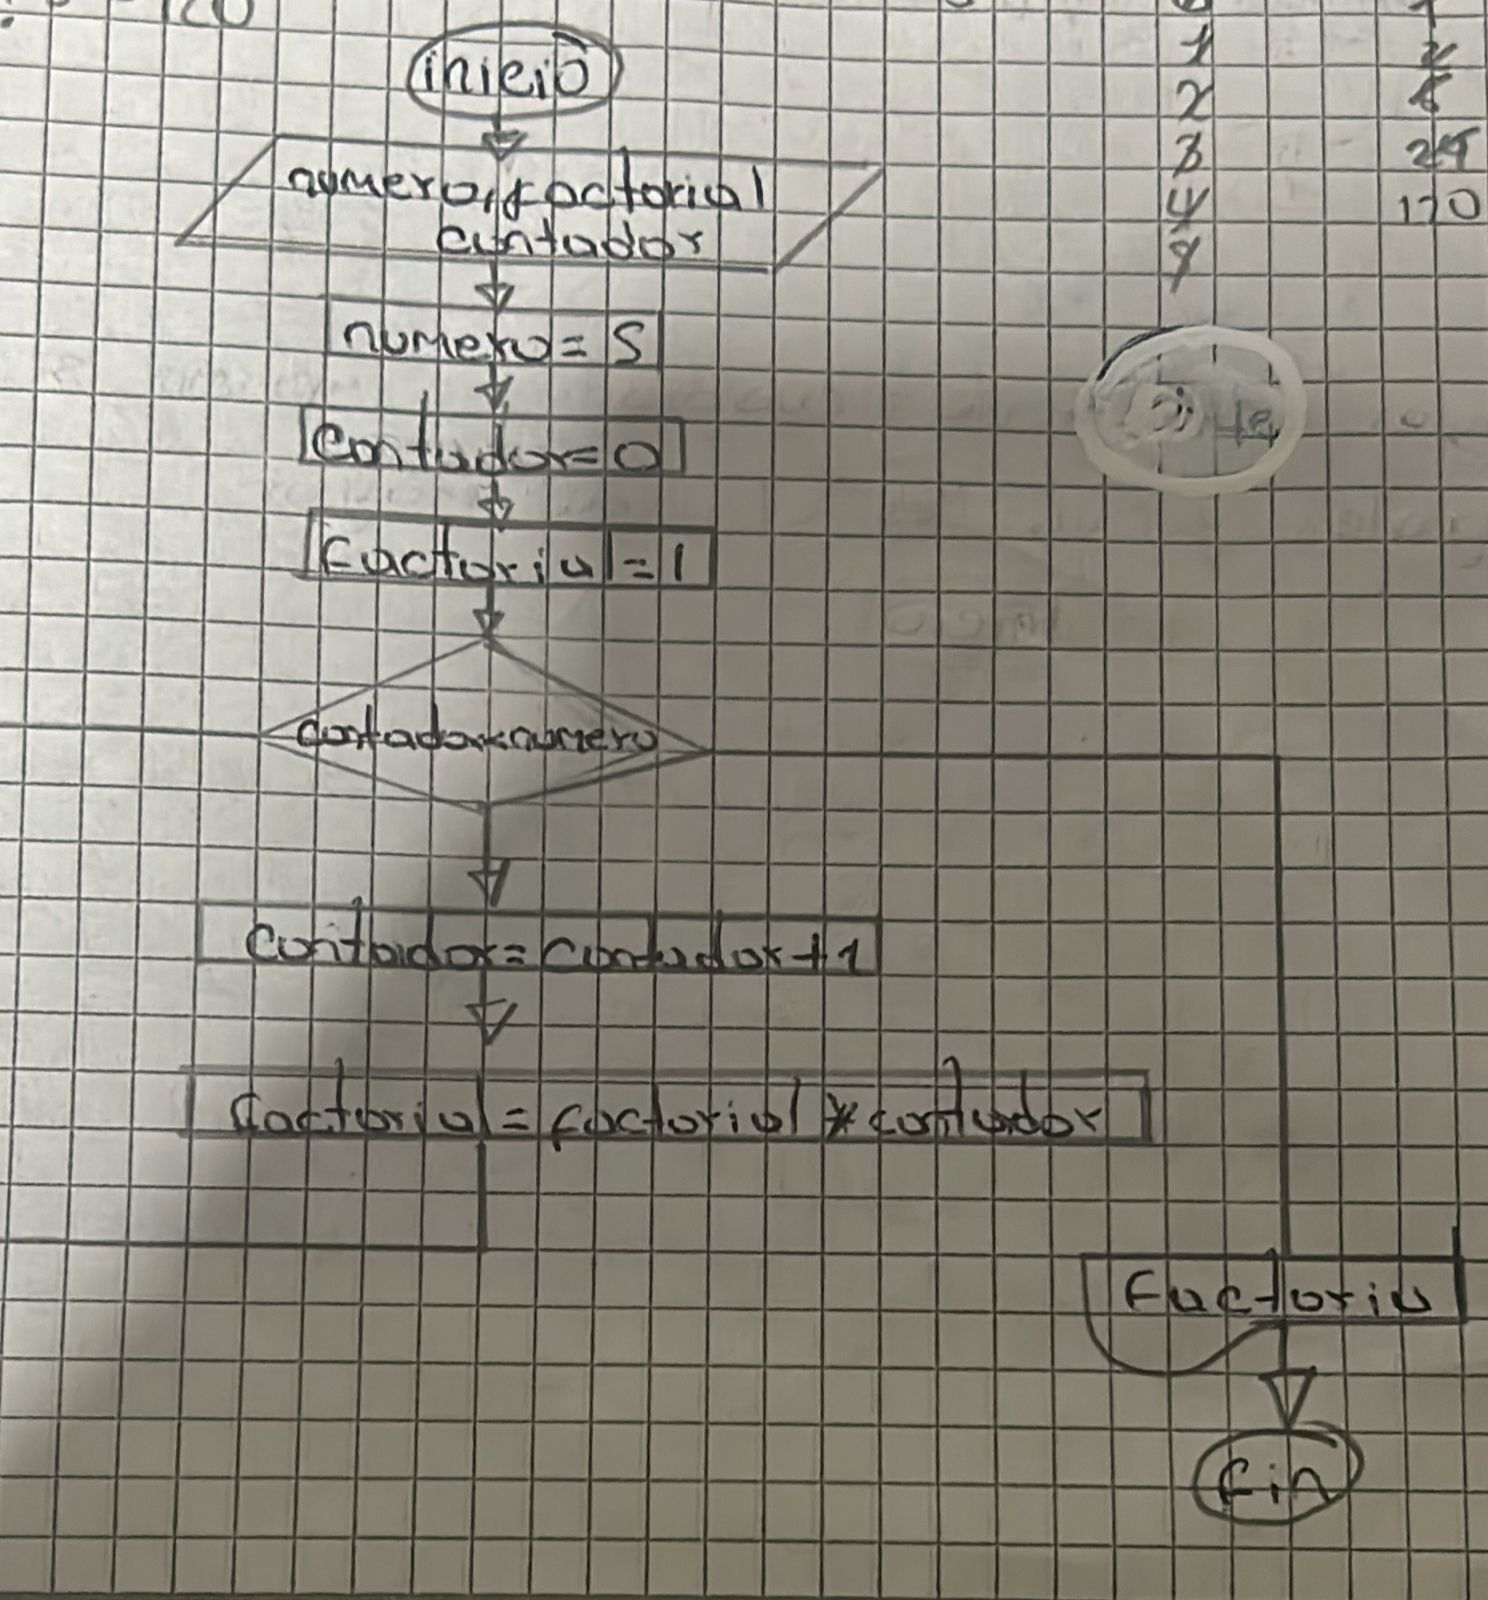 120
inicio
numero, factorial
contador
numero = 5
contador = 0
factorial = 1
contador < numero
contador = contador + 1
factorial = factorial * contador
factorial
fin
1 2
2 6
3 24
4 120